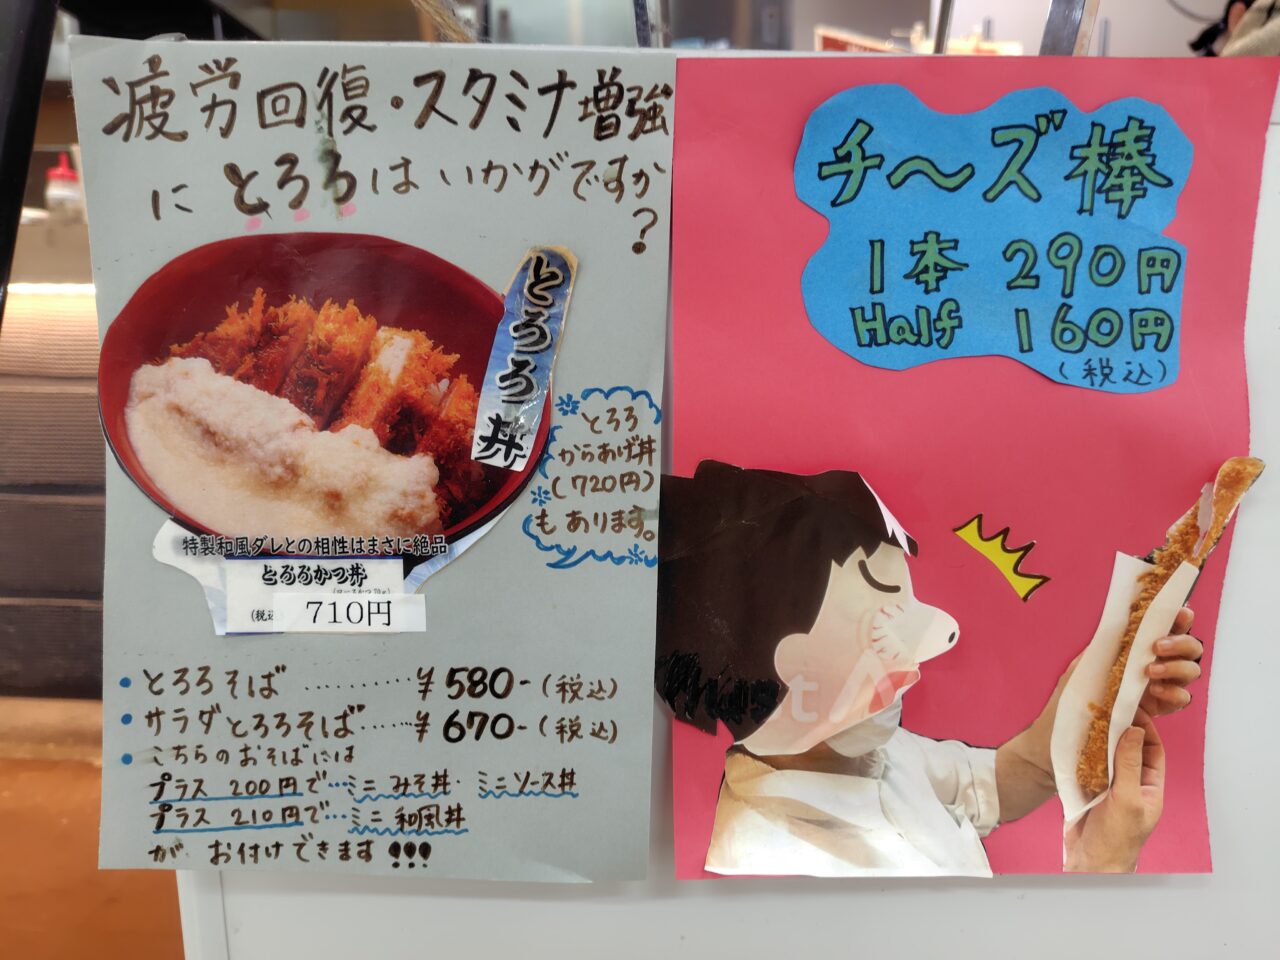 疲労回復・スタミナ増強
に とろろ は いかがですか
?
とろろ丼
とろろ
からあげ丼
(720円)
も あります。
特製和風ダレとの相性はまさに絶品
とろろかつ丼
(税込) 710円
・とろろそば ‥‥‥‥ ¥580-(税込)
・サラダとろろそば‥‥‥ ¥670-(税込)
・こちらのおそばには
プラス 200円で…ミニ みそ丼・ミニソース丼
プラス 210円で…ミニ 和風丼
が お付けできます!!!
チ〜ズ棒
1本 290円
Half 160円
(税込)